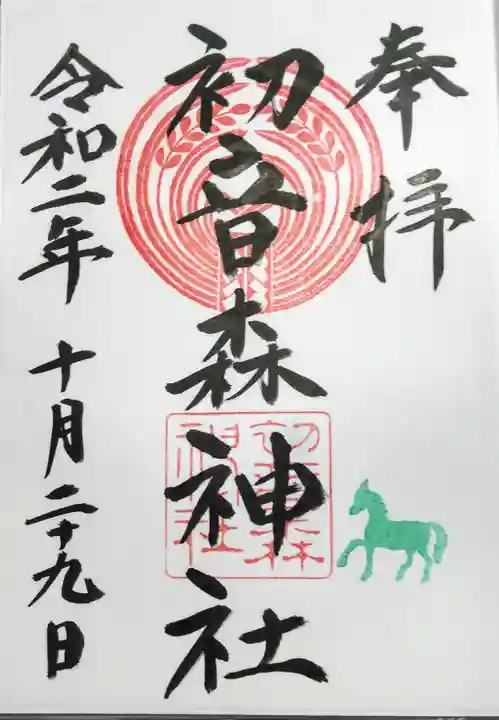 奉拝
初音森神社
初音森神社
令和二年 十月二十九日